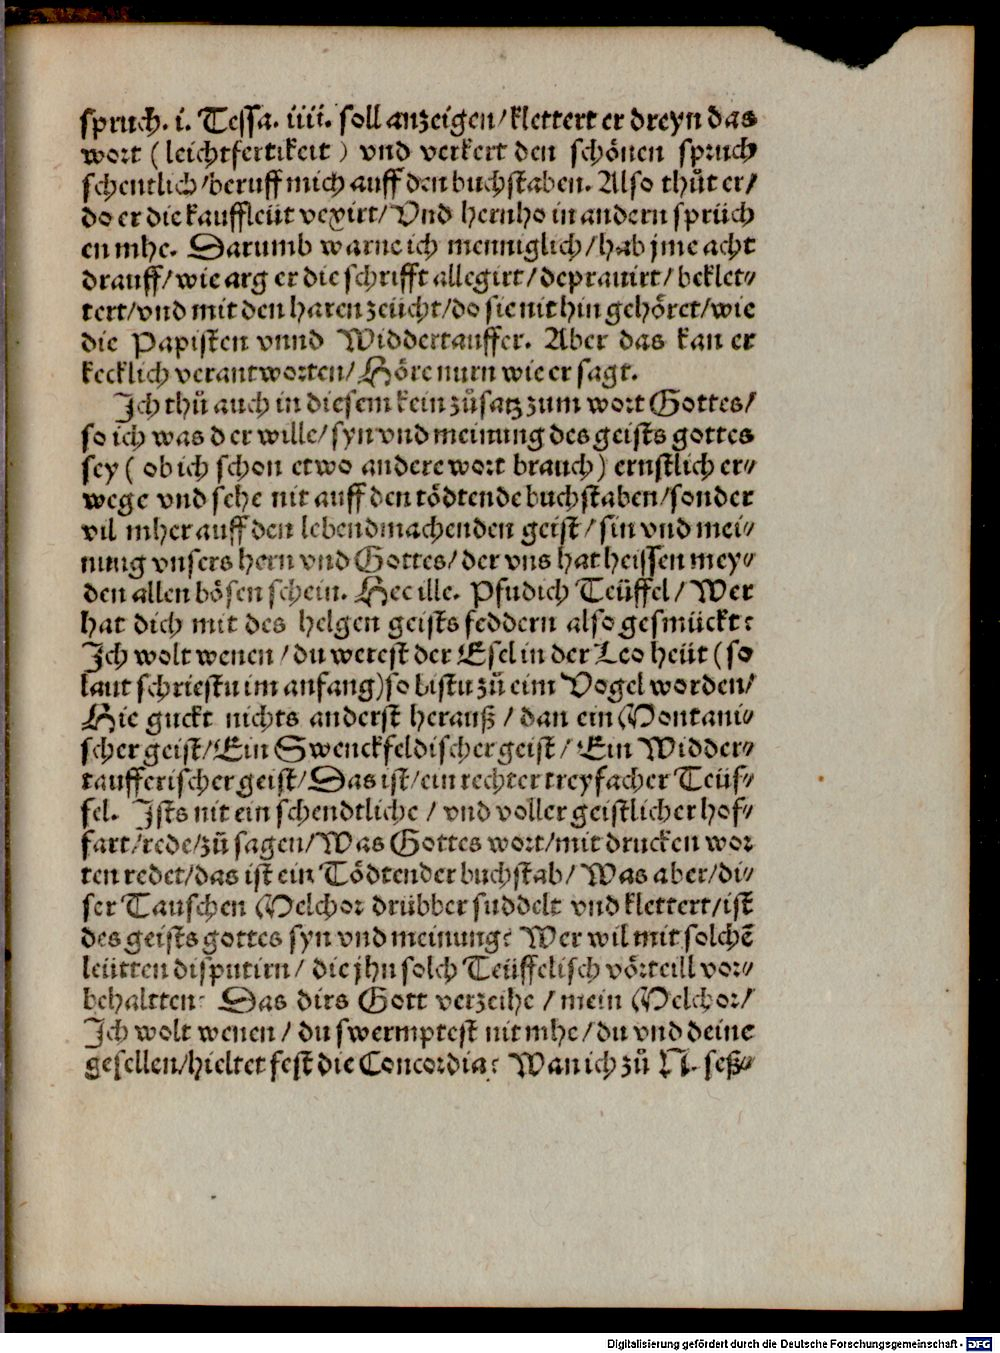 spruch. i. Tessa. iiii. soll anzeigen/ klettert er dreyn das
wort ( leichtfertikeit ) vnd verkert den schönen spruch
schentlich/ beruff mich auff den buchstaben. Also thůt er/
do er die kauffleüt vexirt/ Vnd hernho in andern sprüch
en mhe. Darumb warne ich menniglich/ hab jme acht
drauff/ wie arg er die schrifft allegirt/ deprauirt/ beklet⸗
tert/ vnd mit den haren zeücht/ do sie nit hin gehöret/ wie
die Papisten vnnd Widdertauffer. Aber das kan er
kecklich verantworten/ Höre nurn wie er sagt.
Ich thů auch in diesem kein zůsatz zum wort Gottes/
so ich was der wille/ syn vnd meinung des geists gottes
sey ( ob ich schon etwo andere wort brauch ) ernstlich er⸗
wege vnd sehe nit auff den tödtende buchstaben/ sonder
vil mher auff den lebendmachenden geist/ sin vnd mei⸗
nung vnsers hern vnd Gottes/ der vns hat heissen mey⸗
den allen bösen schein. Hec ille. Pfudich Teüffel/ Wer
hat dich mit des helgen geists feddern also gesmückt?
Ich wolt wenen/ du werest der Esel in der Leo heüt ( so
laut schriestu im anfang) so bistu zů eim Vogel worden/
Hie guckt nichts anderst herauß/ dan ein Montani⸗
scher geist/ Ein Swenckfeldischer geist/ Ein Widder⸗
taufferischer geist/ Das ist/ ein rechter treyfacher Teüf⸗
fel. Ists nit ein schendtliche/ vnd voller geistlicher hof⸗
fart/ rede/ zů sagen/ Was Gottes wort/ mit drucken wor
ten redet/ das ist ein Tödtender buchstab/ Was aber/ di⸗
ser Tauschen Melchor drübber suddelt vnd klettert/ ist
des geists gottes syn vnd meinung? Wer wil mit solchē
leütten disputirn/ die jhn solch Teüffelisch vörteill vor⸗
behaltten? Das dirs Gott verzeihe/ mein Melchor/
Ich wolt wenen/ du swermptest nit mhe/ du vnd deine
gesellen/ hieltet fest die Concordia? Wan ich zů N. seß⸗
Digitalisierung gefördert durch die Deutsche Forschungsgemeinschaft - DFG